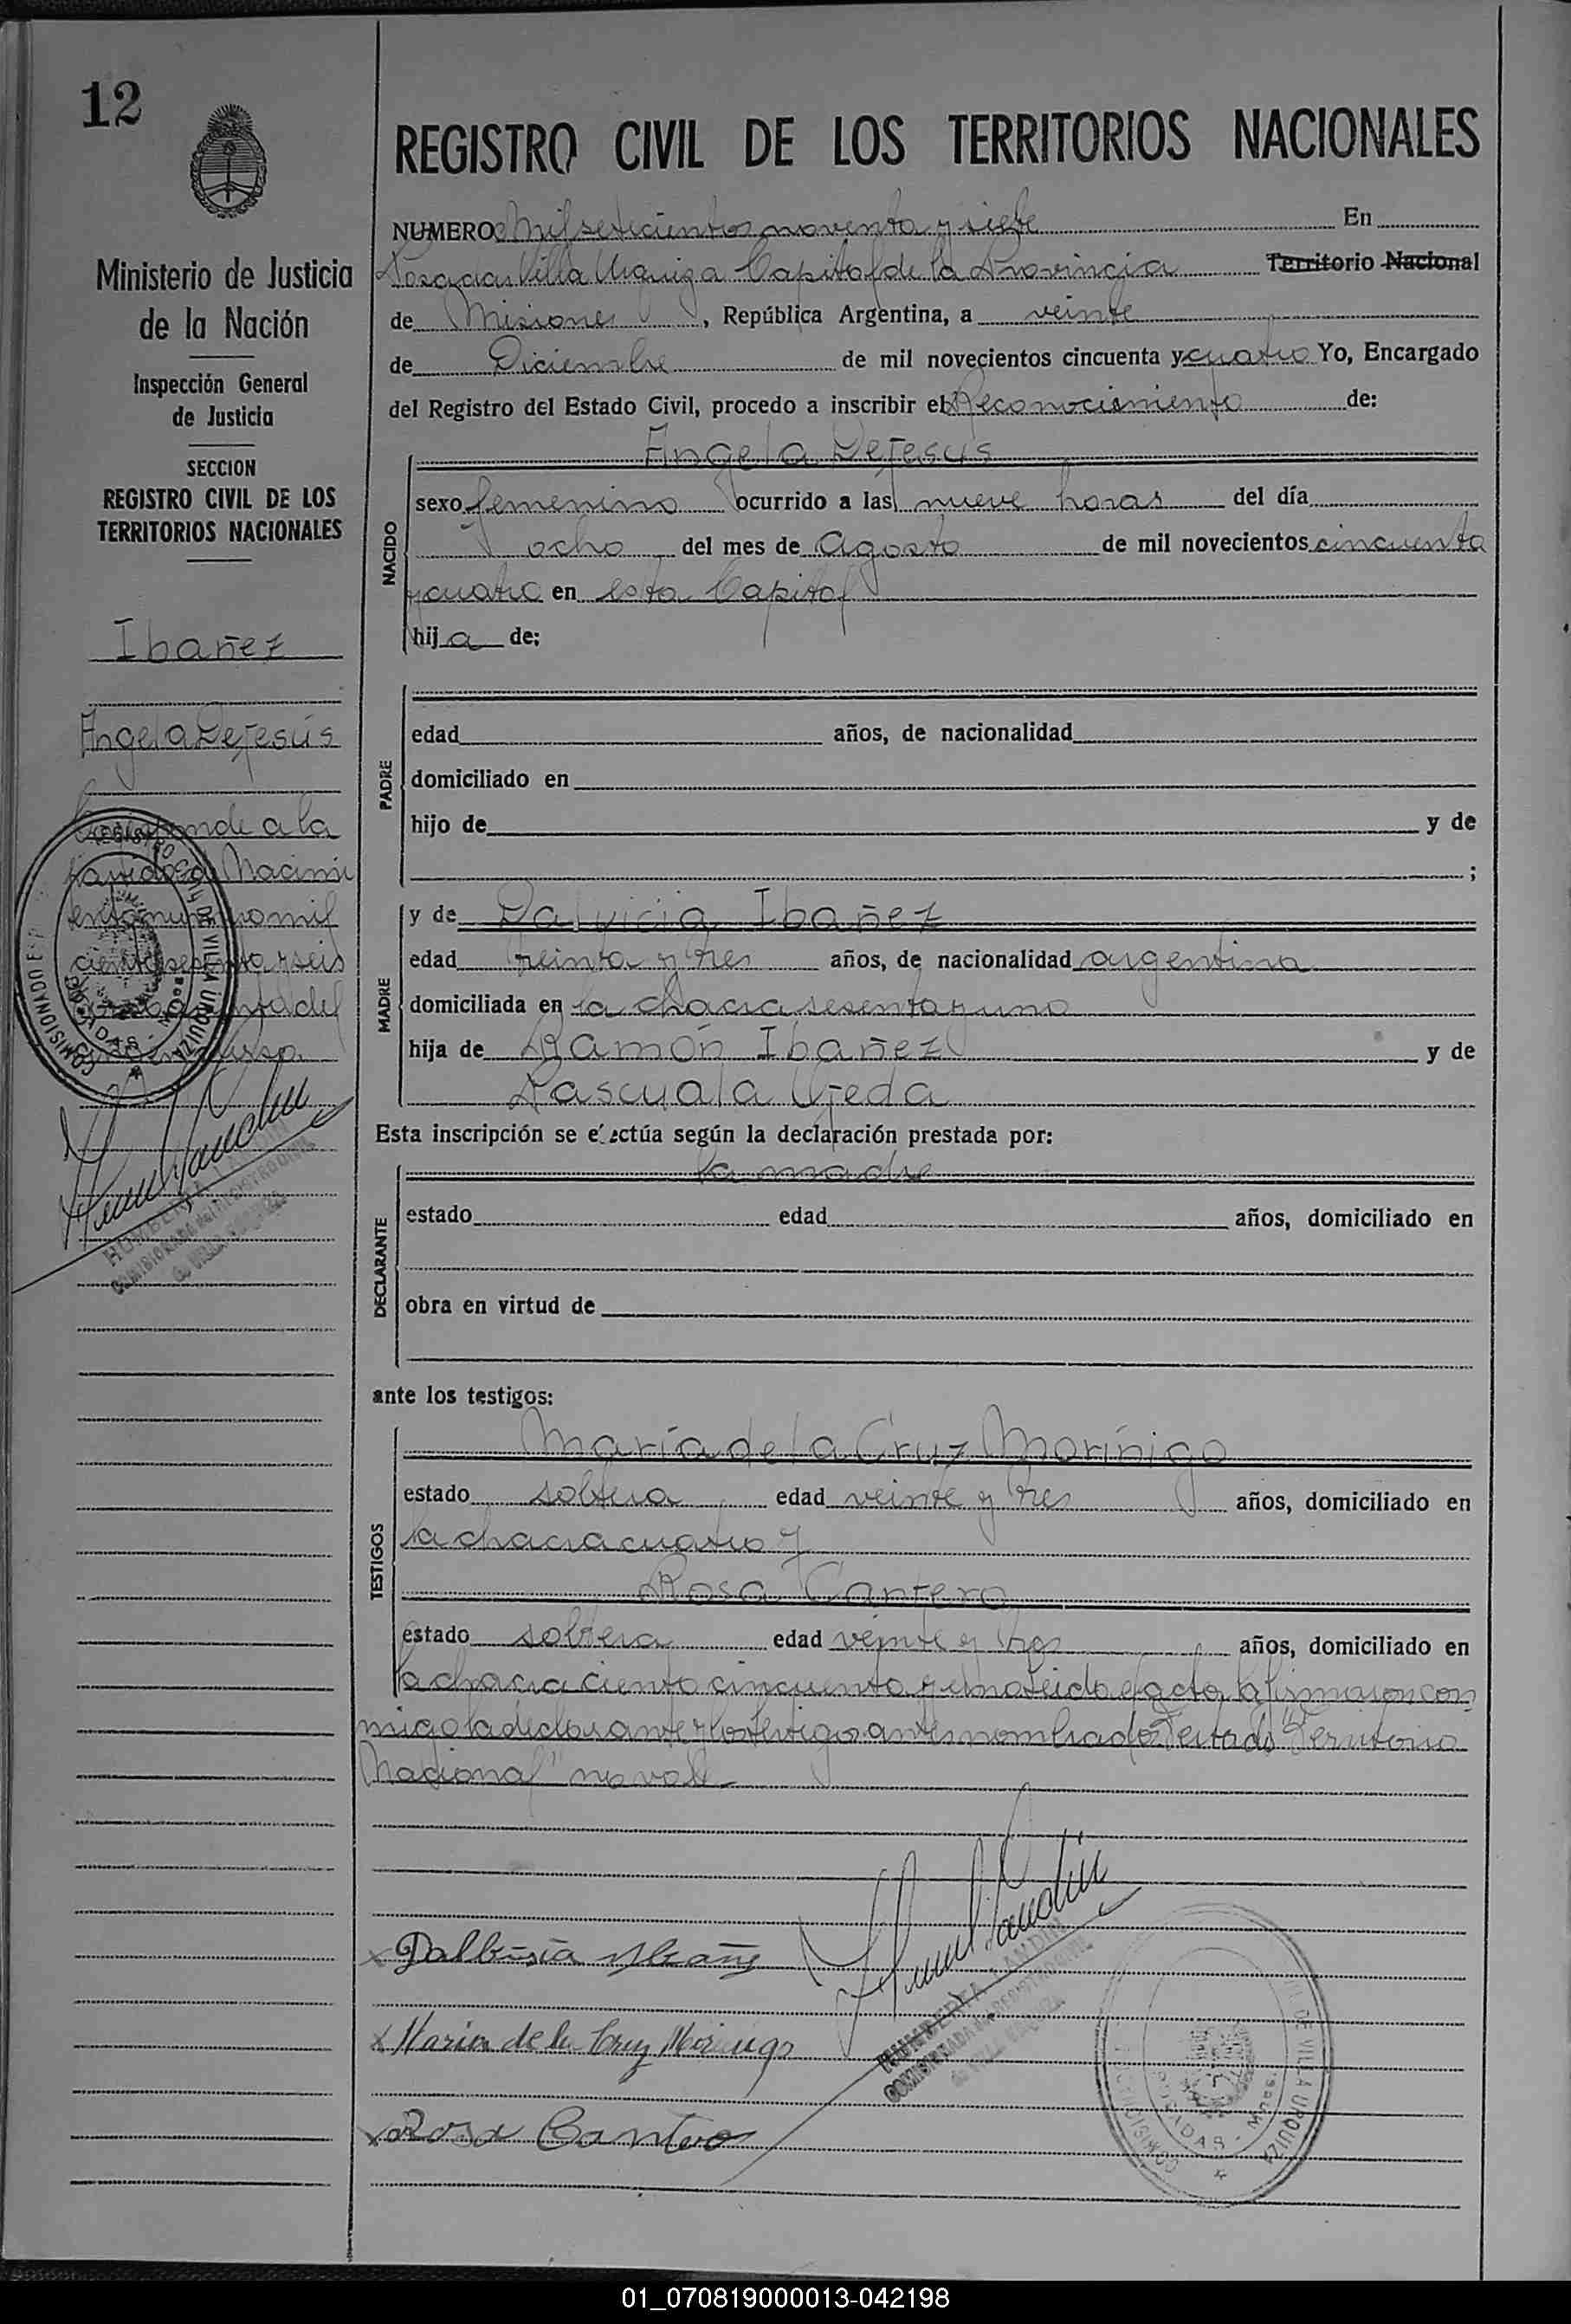 12
Ministerio de Justicia
de la Nación
Inspección General
de Justicia
SECCION
REGISTRO CIVIL DE LOS
TERRITORIOS NACIONALES
Ibañez
Angela Dejesús
a la
Nacimi
mil
y seis
del
REGISTRO CIVIL DE LOS TERRITORIOS NACIONALES
NUMERO Mil setecientos noventa y siete En
Posadas Villa Urquiza Capital de la Provincia Territorio Nacional
de Misiones, República Argentina, a veinte
de Diciembre de mil novecientos cincuenta y cuatro Yo, Encargado
del Registro del Estado Civil, procedo a inscribir el Reconocimiento de:
Angela Dejesús
NACIDO
sexo femenino ocurrido a las nueve horas del día
ocho del mes de Agosto de mil novecientos cincuenta
y cuatro en esta Capital
hija de;
PADRE
edad años, de nacionalidad
domiciliado en
hijo de y de
;
MADRE
y de Ibañez
edad treinta y tres años, de nacionalidad argentina
domiciliada en la chacra sesenta y uno
hija de Ramón Ibañez y de
Pascuala Ojeda
Esta inscripción se efectúa según la declaración prestada por:
la madre
DECLARANTE
estado edad años, domiciliado en
obra en virtud de
ante los testigos:
TESTIGOS
María de la Cruz Moriñigo
estado soltera edad veinte y tres años, domiciliado en
la chacra cuatro y
Rosa Cantero
estado soltera edad veinte y tres años, domiciliado en
la chacra ciento cincuenta y uno leida el acta la firmaron con
migo la declarante y los testigos antes nombrados Testado "Territorio
Nacional" no vale
Dalbisia Ibañez
Maria de la Cruz Moriñigo
Rosa Cantero
COMISIONADA del REGISTRO CIVIL
de VILLA URQUIZA
01_070819000013-042198